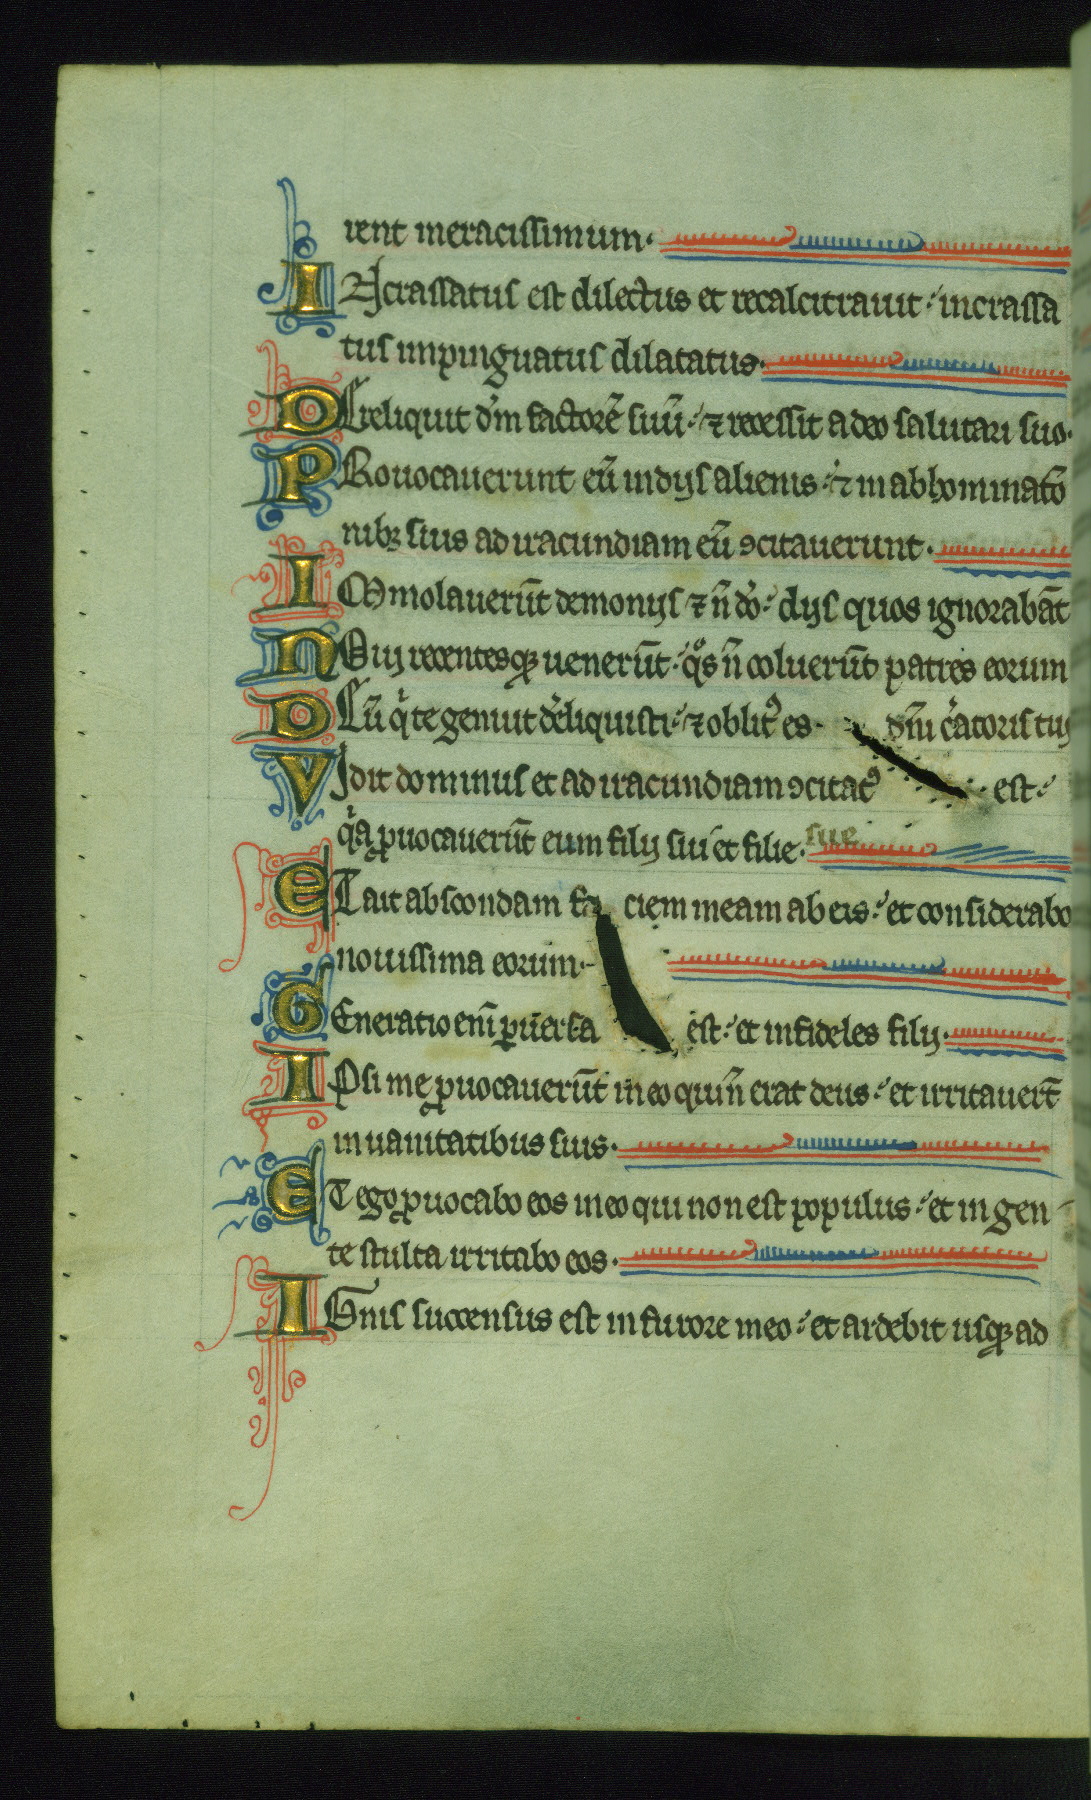 rent meracissimum·
INcrassatus est dilectus et recalcitrauit· incrassa
tus impinguatus dilatatus·
DEreliquit dñm factorē suū· ⁊ recessit a deo salutari suo·
PRouocauerunt eū in diis alienis· ⁊ in abhominatō
nibꝫ suis ad iracundiam eū ꝯcitauerunt·
IMmolauerūt demoniis ⁊ ñ do· diis quos ignorabāt
NOui recentesqꝫ uenerūt· qͦs ñ coluerūt patres eorum
DEū qͥ te genuit dereliquisti· ⁊ oblitꝰ es· dñi cͣatoris tui
VIdit dominus et ad iracundiam ꝯcitatꝰ est·
qͥa ꝓuocauerūt eum filii sui et filie· sue
ET ait abscondam fa ciem meam ab eis· et considerabo
nouissima eorum·
GEneratio eni ꝑuersa est· et infideles filii·
IPsi me ꝓuocauerūt in eo qui ñ erat deus· et irritauert̄
in uanitatibus suis·
ET ego ꝓuocabo eos in eo qui non est populus· et in gen
te stulta irritabo eos·
IGnis succensus est in furore meo· et ardebit usqꝫ ad